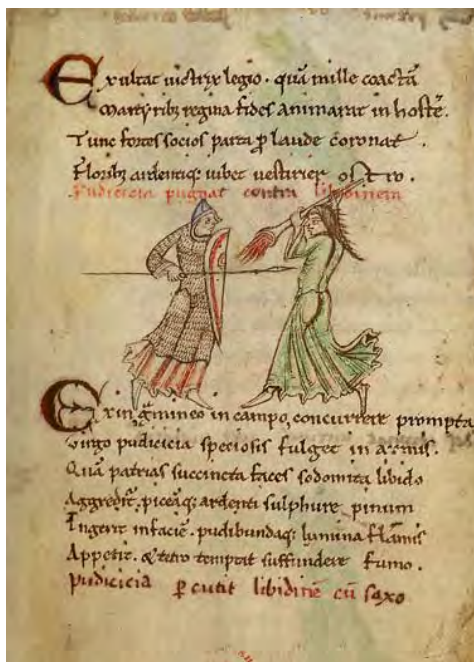 Exultat uictrix legio. quā mille coactā
Martyribꝫ regina fides animarat in hostē.
Tunc fortes socios parta ꝓ laude coronat.
Floribꝫ ardentiqꝫ iubet uestirier ostro.
Pudicicia pugnat contra libidinem
Exin gͣmineo in campo, concurrere prompta
Virgo pudicicia speciosis fulget in armis.
Quā patrias succincta faces sodomita libido
Aggredit᷑, piceāqꝫ ardenti sulphure pinum
Ingerit in faciē. pudibundaqꝫ lumina flāmis
Appetit. & tetro temptat suffundere fumo.
Pudicicia ꝑcutit libidinē cū saxo